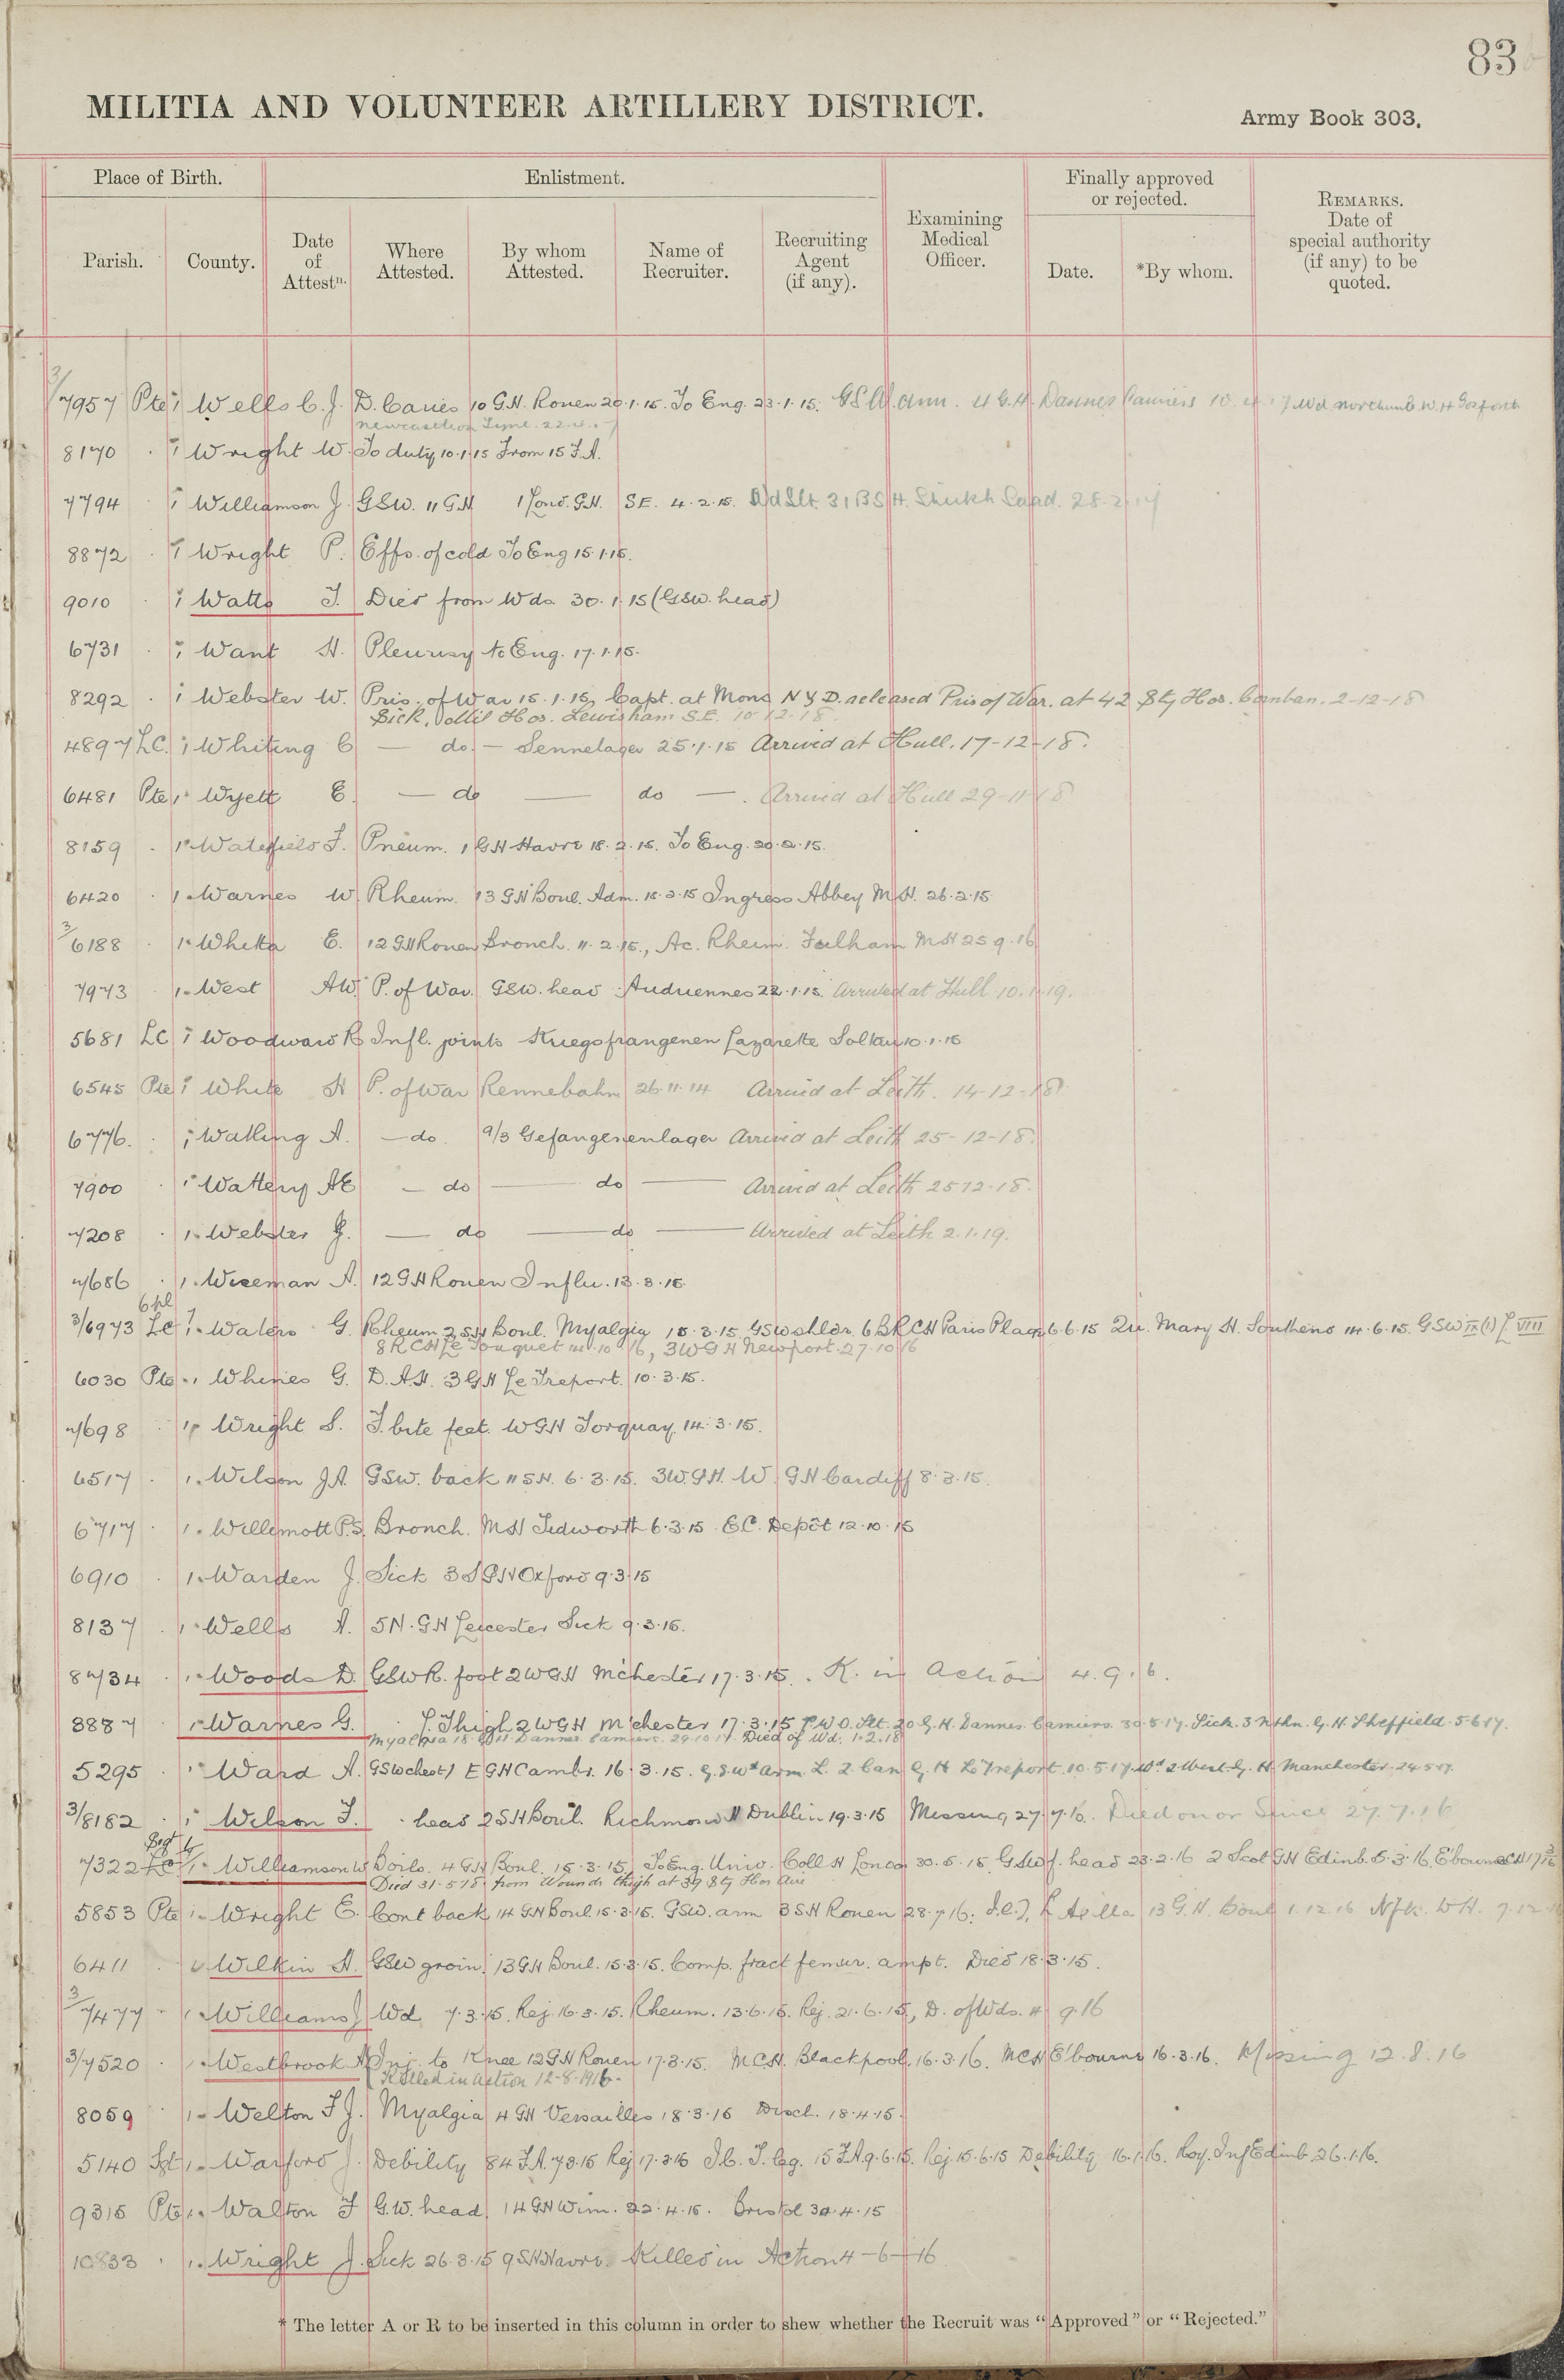 83
MILITIA AND VOLUNTEER ARTILLERY DISTRICT.
Army Book 303.
Place of Birth.
Enlistment.
Finally approved or rejected.
Parish.
County.
Date of Attestn.
Where Attested.
By whom Attested.
Name of Recruiter.
Recruiting Agent (if any).
Examining Medical Officer.
Date.
*By whom.
REMARKS. Date of special authority (if any) to be quoted.
3/7957 Pte 1 Wells C.J. D. Caries 10 G.H. Rouen 20.1.15. To Eng. 23.1.15. GSW. arm. 4 G.H. Dannes Camiers 10.4.17 Wd Northumb W.H Gosforth
Newcastle on Tyne. 22.4.17
8170 1 Wright W. To duty 10.1.15 From 15 F.A.
7794 1 Williamson J. GSW. 11 G.H 1 Lond. G.H. SE. 4.2.15. Wd Slt. 31 BSH. Sheikh Saad. 28.2.17
8872 1 Wright P. Effs. of cold To Eng 15.1.15.
9010 1 Watts J. Died from Wds 30.1.15 (GSW. head)
6731 1 Want H. Pleurisy to Eng. 17.1.15.
8292 1 Webster W. Pris. of War 15.1.15, Capt. at Mons N Y D. released Pris of War. at 42 Sty Hos. 2-12-18
Sick, Mil Hos. Lewisham S.E. 10 12.18
4897 LC. 1 Whiting C — do. — Sennelager 25.1.15 Arrived at Hull. 17-12-18.
6481 Pte 1 Wyett E. — do — do — . Arrived at Hull 29-11-18
8159 1 Waterfield F. Pneum. 1 GH Havre 18.2.15. To Eng. 20.2.15.
6420 1 Warnes W. Rheum. 13 GH Boul. Adm. 15.2.15 Ingress Abbey M.H. 26.2.15
3/6188 1 Whitta E. 12 GH Rouen Bronch. 11.2.15., Ac. Rheum. Fulham MH 25 9.16
7973 1 West AW. P. of War. GSW. head Auduennes 22.1.15. Arrived at Hull 10.1.19.
5681 LC 1 Woodward R Infl. joints Kriegsfrangenen Lazarette Soltau 10.1.15
6545 Pte 1 White H P. of War Rennebahn 26.11.14 Arrived at Leith. 14-12-18
6776. 1 Watling A. — do. 9/3 Gefangenenlager Arrived at Leith 25-12-18.
7900 1 Wattery AE — do — do — Arrived at Leith 25 12.18.
7208 1 Webster G. — do — do — Arrived at Leith 2.1.19.
7686 1 Wiseman A. 12 GH Rouen Influ. 13.3.15.
Cpl
3/6973 LC 1 Waters G. Rheum 2 SH Boul. Myalgia 15.3.15. GSW shldr. 6 BRCH Paris Plage 6.6.15 Qu. Mary H. Southend 14.6.15. GSW IX(1) L VIII
8 RCH Le Touquet 14.10 16, 3WGH Newport. 27.10 16
6030 Pte 1 Whines G. D.A.H. 3 GH Le Treport. 10.3.15.
7698 1 Wright S. F. bite feet. WGH Torquay. 14.3.15.
6517 1 Wilson J.A. GSW. back 11 SH. 6.3.15. 3W.G.H. W. GH Cardiff 8.3.15.
6717 1 Willimott P.S. Bronch. MH Tidworth 6.3.15 E.C. Depôt 12.10.15
6910 1 Warden J. Sick 3 SGH Oxford 9.3.15
8137 1 Wells A. 5N. GH Leicester Sick 9.3.15.
8734 1 Woods D. GSW R. foot 2 WGH M'chester 17.3.15. K. in Action 4.9.16.
8887 1 Warnes G. L Thigh 2 WGH M'chester 17.3.15 P.W.O. Slt. 20 G.H. Dannes Camiers. 30.5.17. Sick. 3 Nthn. G.H. Sheffield. 5.6.17.
Myalgia 18 GH Dannes Camiers. 29.10.17. Died of Wd. 1.2.18
5295 1 Ward A. GSW chest 1 EGH Cambr. 16.3.15. G.S.Wd arm. L. 2 Can G.H Le Treport. 10.5.17. Wd 2 West G. H Manchester. 24.5.17.
3/8182 1 Wilson F. head 2 SH Boul. Richmond H Dublin 19.3.15 Missing 27.7.16. Died on or since 27.7.16
Sgt
7322 LC 1 Williamson W Boils. 4 GH Boul. 15.3.15, To Eng. Univ. Coll H London 30.5.15. GSW f. head 23.2.16 2 Scot GH Edinb. 5.3.16, E'bourne
Died 31.5.18. from Wounds thigh at 39 Sty Hos Aire
5853 Pte 1 Wright E. Cont back 14 GH Boul. 15.3.15. GSW. arm 3 SH Rouen 28.7.16. 13 G.H. Boul 1.12.16 Nflk. W.H. 7.12.
6411 Wilkin H. GSW groin. 13 GH Boul. 15.3.15. Comp. fract femur. ampt. Died 18.3.15.
3/7477 1 Williams J Wd. 7.3.15. Rej. 16.3.15. Rheum. 13.6.15. Rej. 21.6.15, D. of Wds. 4 9.16
3/7520 1 Westbrook A Inj. to Knee 12 GH Rouen 17.3.15. MCH. Blackpool, 16.3.16. MCH E'bourne 16.3.16. Missing 12.8.16
Killed in action 12-8-1916.
8059 1 Welton F J. Myalgia 4 GH Versailles 18.3.15 Disch. 18.4.15.
5140 Sgt 1 Warford J. Debility 84 F.A. 7.3.15 Rej 17.3.15 I.C. T. leg. 15 F.A 9.6.15. Rej. 15.6.15 Debility 16.1.16. Roy. Inf Edinb 26.1.16.
9315 Pte 1 Walton F G.W. head 14 GH Wim. 22.4.15. Bristol 30.4.15
10833 1 Wright J. Sick 26.3.15 9 SH Havre. Killed in Action 4-6-16
* The letter A or R to be inserted in this column in order to shew whether the Recruit was "Approved" or "Rejected."